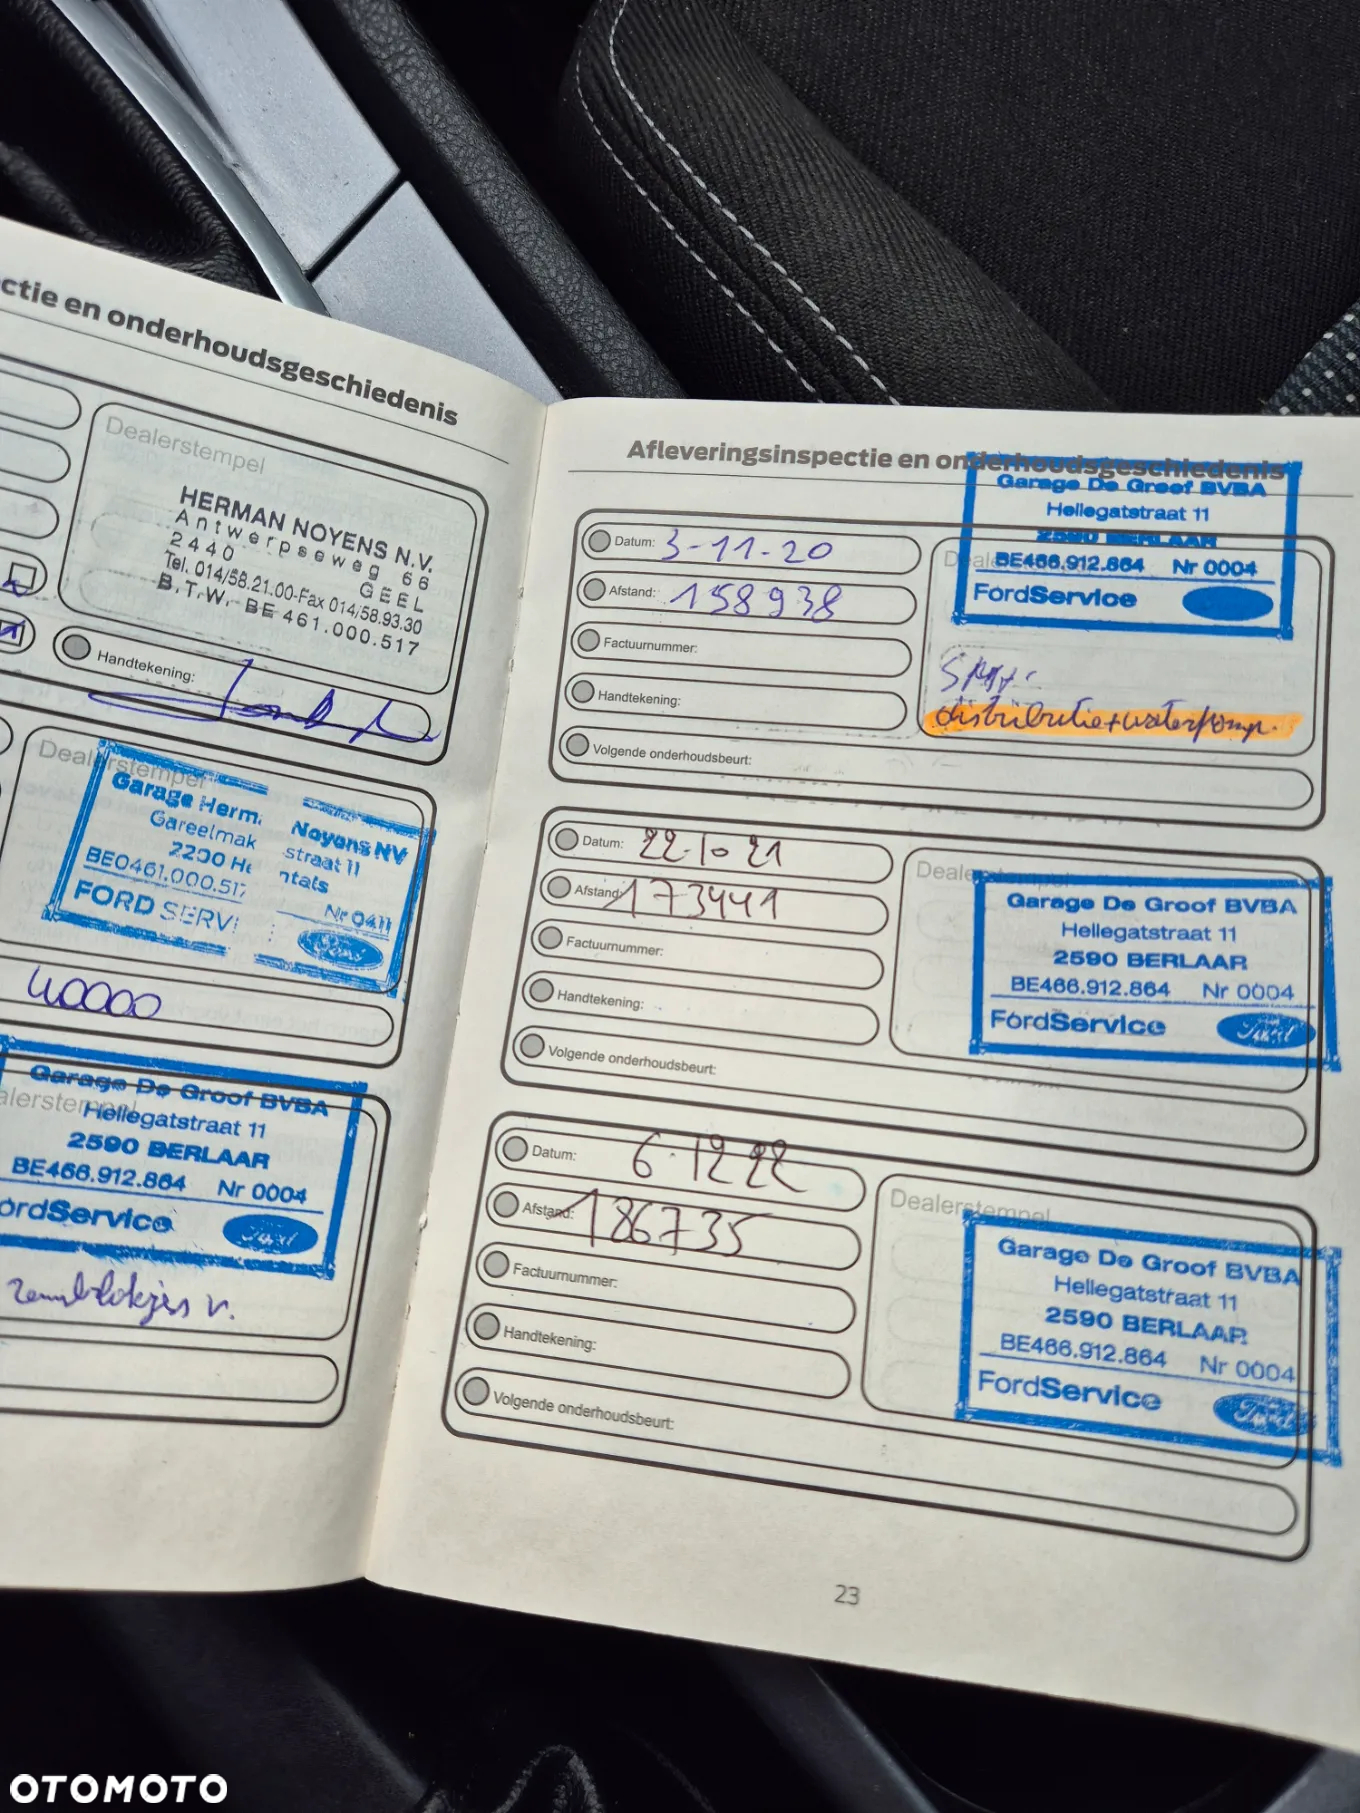 ctie en onderhoudsgeschiedenis
Dealerstempel
HERMAN NOYENS N.V.
Antwerpseweg 66
2440 GEEL
Tel. 014/58.21.00-Fax 014/58.93.30
B.T.W. - BE 461.000.517
Handtekening:
Dealerstempel
Garage Herma Noyens NV
Gareelmak straat 11
2200 He ntals
BE0461.000.517 Nr 0411
FORD SERVI
Ford
40000
alerstempel
Garage De Groof BVBA
Hellegatstraat 11
2590 BERLAAR
BE466.912.864 Nr 0004
ordService Ford
remblokjes v.
Afleveringsinspectie en onderhoudsgeschiedenis
Datum: 3-11-20
Afstand: 158938
Factuurnummer:
Handtekening:
Volgende onderhoudsbeurt:
Garage De Groof BVBA
Hellegatstraat 11
2590 BERLAAR
BE466.912.864 Nr 0004
FordService
distributie+waterpomp.
Datum: 22-10 21
Afstand: 173441
Factuurnummer:
Handtekening:
Volgende onderhoudsbeurt:
Dealerstempel
Garage De Groof BVBA
Hellegatstraat 11
2590 BERLAAR
BE466.912.864 Nr 0004
FordService Ford
Datum: 6-12 22
Afstand: 186735
Factuurnummer:
Handtekening:
Volgende onderhoudsbeurt:
Dealerstempel
Garage De Groof BVBA
Hellegatstraat 11
2590 BERLAAR
BE466.912.864 Nr 0004
FordService Ford
23
OTOMOTO